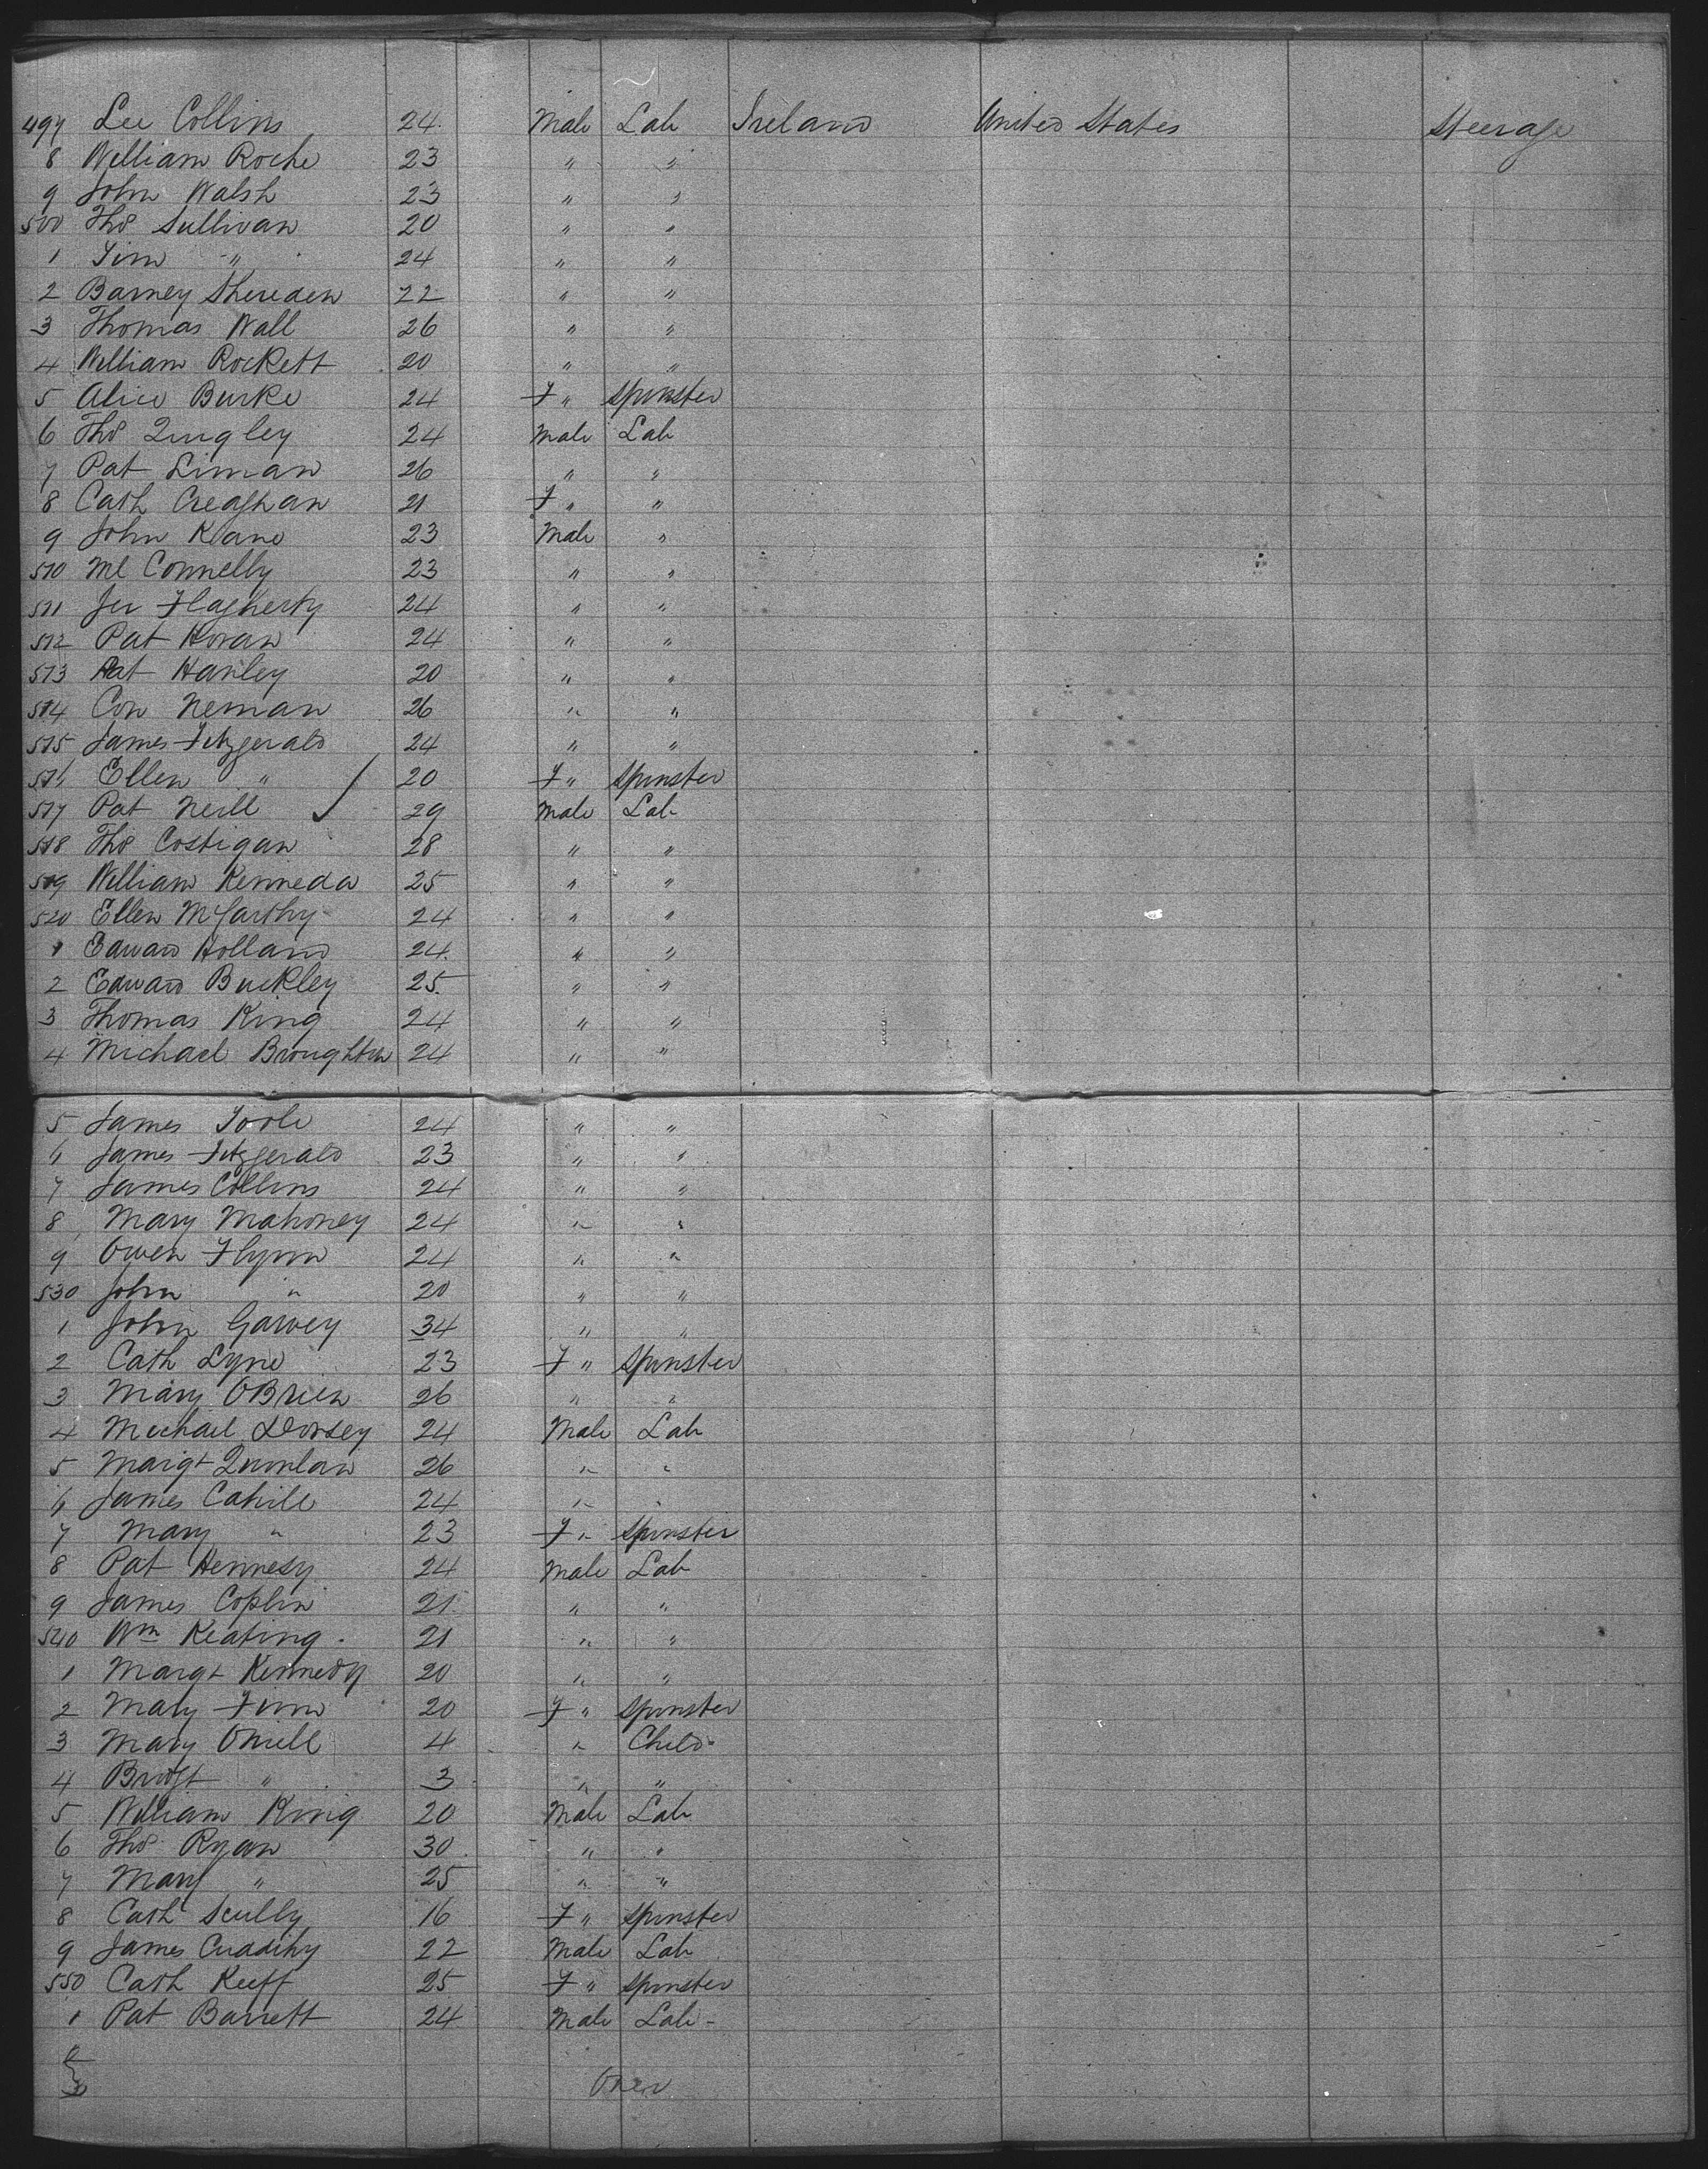 497 Lee Collins 24 Male Lab Ireland United States Steerage
8 William Roche 23 " "
9 John Walsh 23 " "
500 Thos Sullivan 20 " "
1 Tim " 24 " "
2 Barney Shereden 22 " "
3 Thomas Wall 26 " "
4 William Rockett 20 " "
5 Alice Burke 24 F " Spinster
6 Thos Quigley 24 Male Lab
7 Pat Liman 26 " "
8 Cath Creaghan 21 F " "
9 John Kane 23 Male "
510 Ml Connelly 23 " "
511 Jer Flagherty 24 " "
512 Pat Horan 24 " "
513 Pat Hanley 20 " "
514 Con Neman 26 " "
515 James Fitzgerald 24 " "
516 Ellen " 20 F " Spinster
517 Pat Neill 29 Male Lab
518 Thos Costigan 28 " "
519 William Kenneda 25 " "
520 Ellen McCarthy 24 " "
1 Edward Holland 24 " "
2 Edward Buckley 25 " "
3 Thomas King 24 " "
4 Michael Broughton 24 " "
5 James Toole 24 " "
6 James Fitzgerald 23 " "
7 James Collins 24 " "
8 Mary Mahoney 24 " "
9 Owen Flynn 24 " "
530 John " 20 " "
1 John Garvey 34 " "
2 Cath Lyne 23 F " Spinster
3 Mary OBrien 26 " "
4 Michael Dorsey 24 Male Lab
5 Margt Quinlan 26 " "
6 James Cahill 24 " "
7 Mary " 23 F " Spinster
8 Pat Hennesy 24 Male Lab
9 James Coplin 21 " "
540 Wm Keating 21 " "
1 Margt Kennedy 20 " "
2 Mary Finn 20 F " Spinster
3 Mary ONeill 4 " Child
4 Bridgt " 3 " "
5 William King 20 Male Lab
6 Thos Ryan 30 " "
7 Mary " 25 " "
8 Cath Scully 16 F " Spinster
9 James Cuddihy 22 Male Lab
550 Cath Keeff 25 F " Spinster
1 Pat Barrett 24 Male Lab
Over